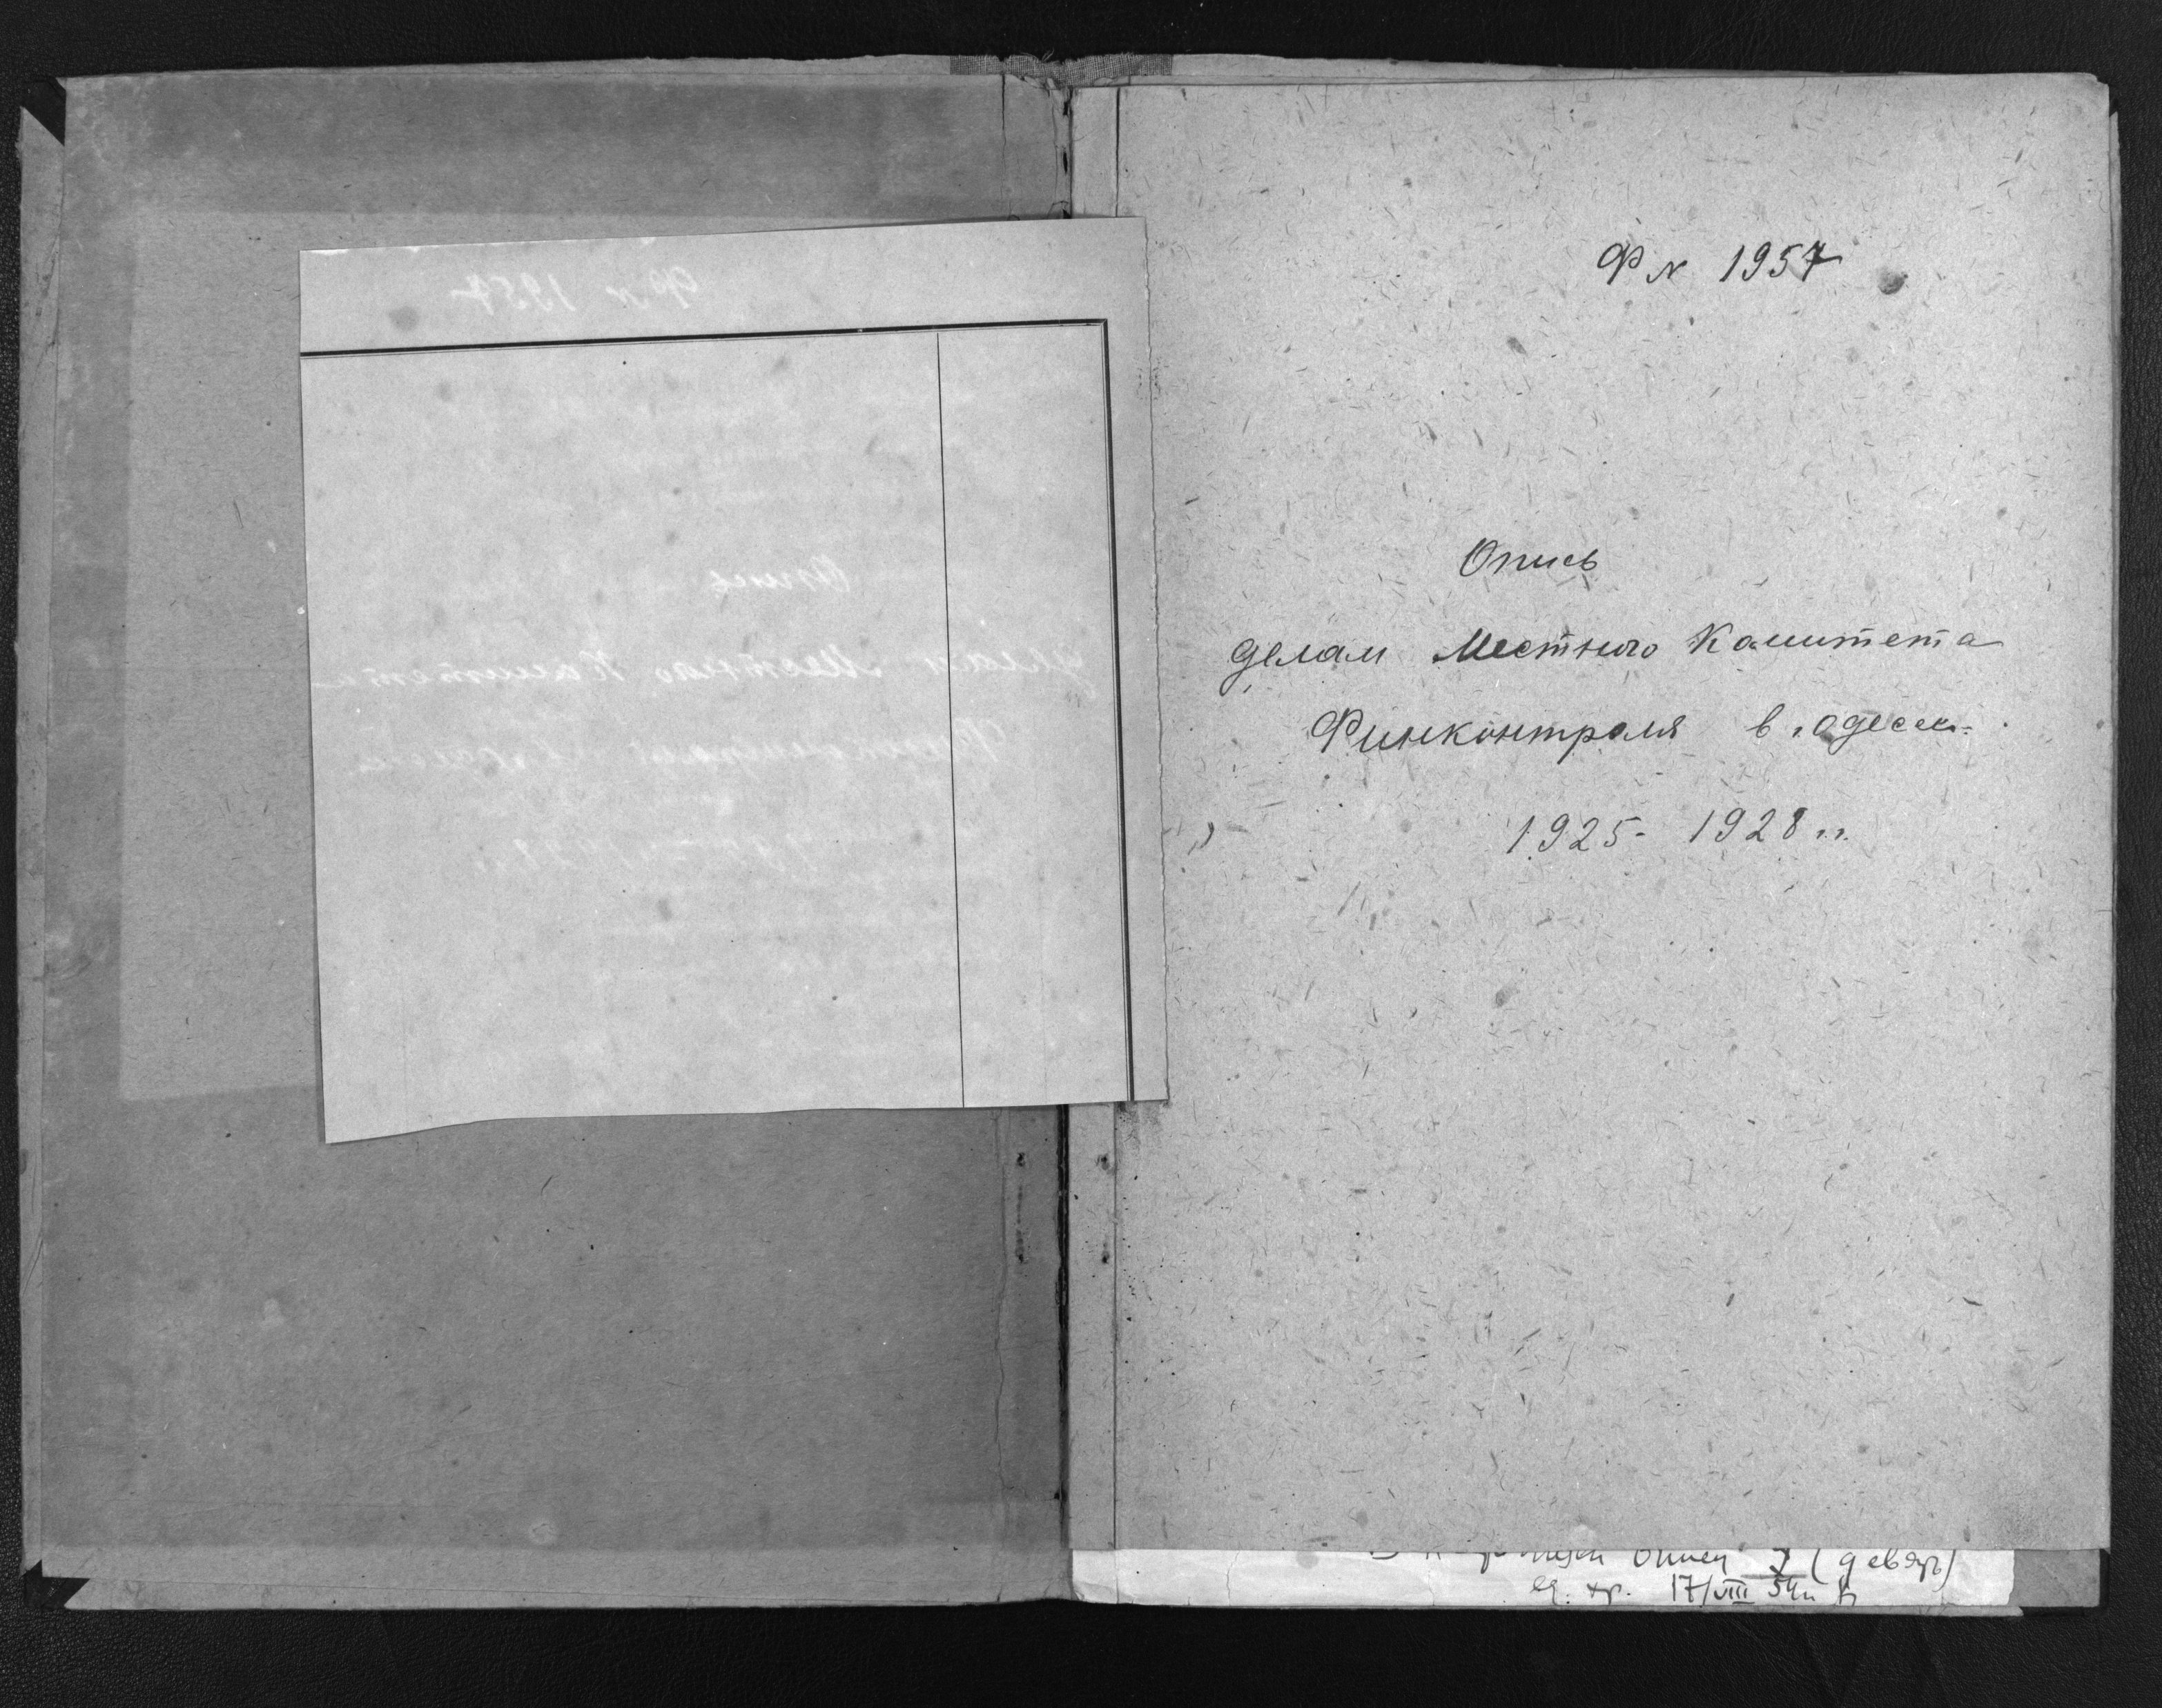 Ф N 1957
Опись
делам Местного Комитета
Финконтроля в г. Одессе
1925 - 1928 г.г.
описи (девять)
ед. хр. 17/VIII 54г.